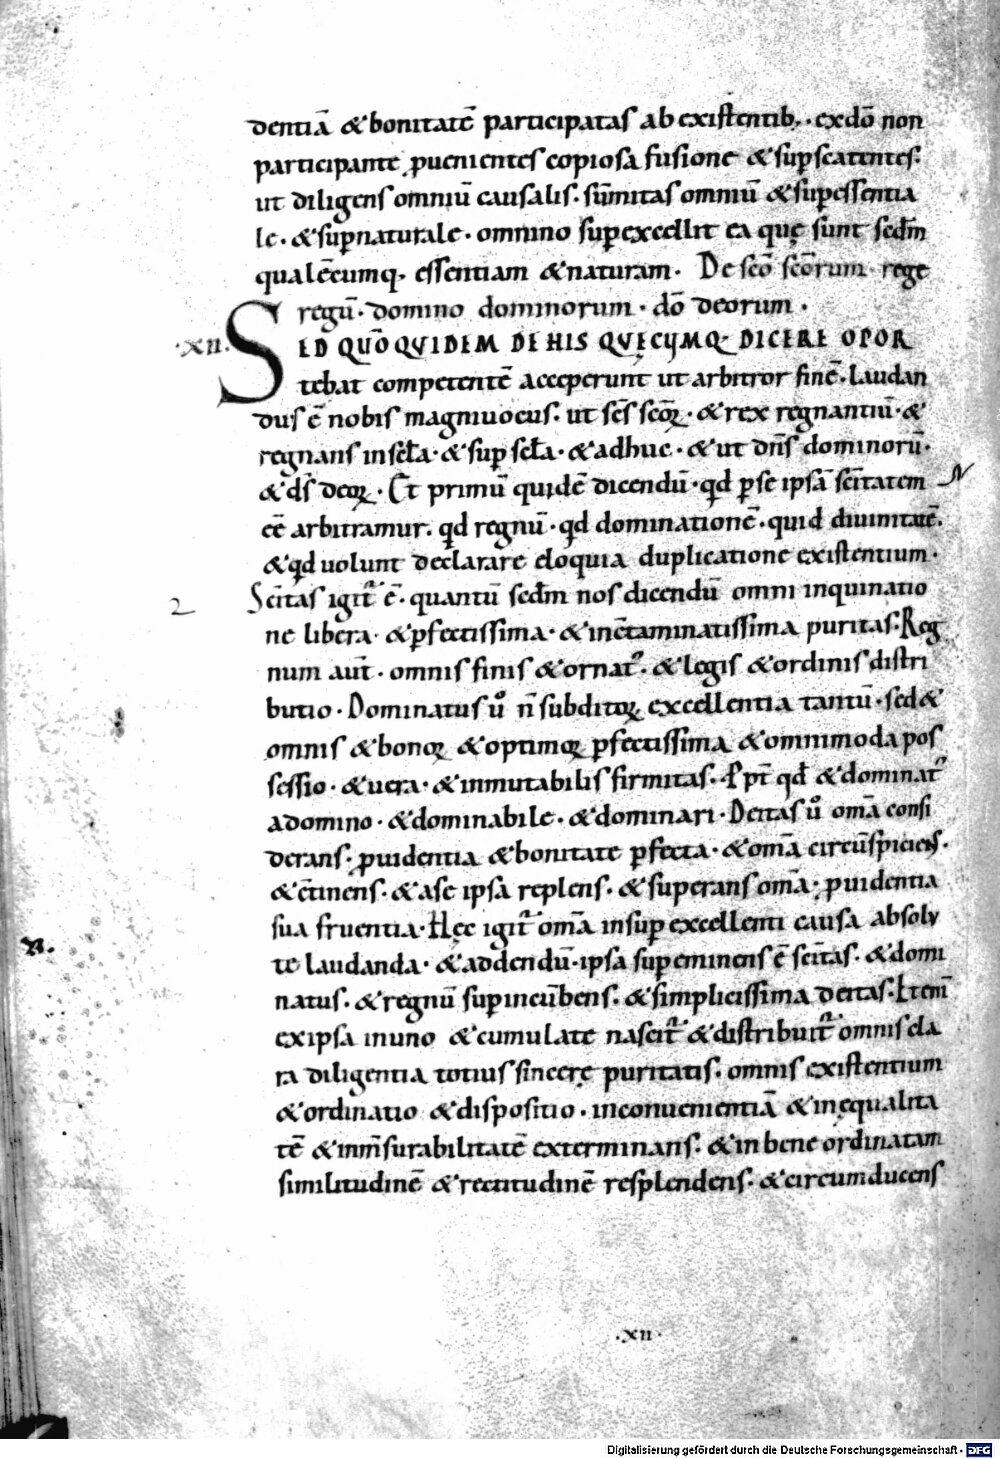 dentiā & bonitatē participatas ab existentib;. ex dō non
participante ꝓuenientes copiosa fusione & suꝑscatentes.
ut diligens omniū causalis. sūmitas omniū & suꝑessentia
le. & suꝑnaturale. omnino suꝑexcedlit ea quę sunt secđm
qualēcumq. essentiam & naturam. De scō scōrum rege
regū. domino dominorum. dō deorum.
·XII· SED QUŌ QVIDEM DE HIS QVĘCVMQ DICERE OPOR
tebat competentē acceperunt ut arbitror finē. Laudan
dus ē nobis magniuocus. ut scs scōꝝ. & rex regnantiū. &
regnans in scła. & suꝑ scła. & adhuc. & ut dn̄s dominorū.
& ds̄ deoꝝ. Et primū quidē dicendū. qd ꝑ se ipsā scītatem
eē arbitramur. qd regnū. qd dominationē. quid diuinitatē.
& qd uolunt declarare eloquia duplicatione existentium.
2 Scītas igit ē. quantū secđm nos dicendū omni inquinatio
ne libera. & ꝑfectissima. & inc̄taminatissima puritas. Reg
num aut̄. omnis finis & ornat᾿. & legis & ordinis distri
butio. Dominatus ů n̄ subditoꝝ excellentia tantū. sed &
omnis & bonoꝝ & optimoꝝ ꝑfectissima & omnimoda pos
sessio. & uera. & inmutabilis firmitas. Ppt̄ qđ & dominat᾿
a domino. & dominabile. & dominari. Deitas ů omā consi
derans. ꝓuidentia & bonitate ꝑfecta. & omā circūspiciens.
& c̄tinens. & a se ipsā replens. & superans omā. ꝓuidentia
sua fruentia. Hęc igit omā insuꝑ excellenti causa absolu
te laudanda. & addendū. ipsa suꝑeminens ē scītas. & domi
natus. & regnū suꝑincūbens. & simplicissima deitas. Etenī
ex ipsa in uno & cumulate nascit & distribuit omnis cla
ra diligentia totius sincerę puritatis. omnis existentium
& ordinatio & dispositio. inconuenientiā & inęqualita
tē & inm̄surabilitatē exterminans. & in bene ordinatam
similitudinē & rectitudinē resplendens. & circumducens
·XII·
Digitalisierung gefördert durch die Deutsche Forschungsgemeinschaft - DFG